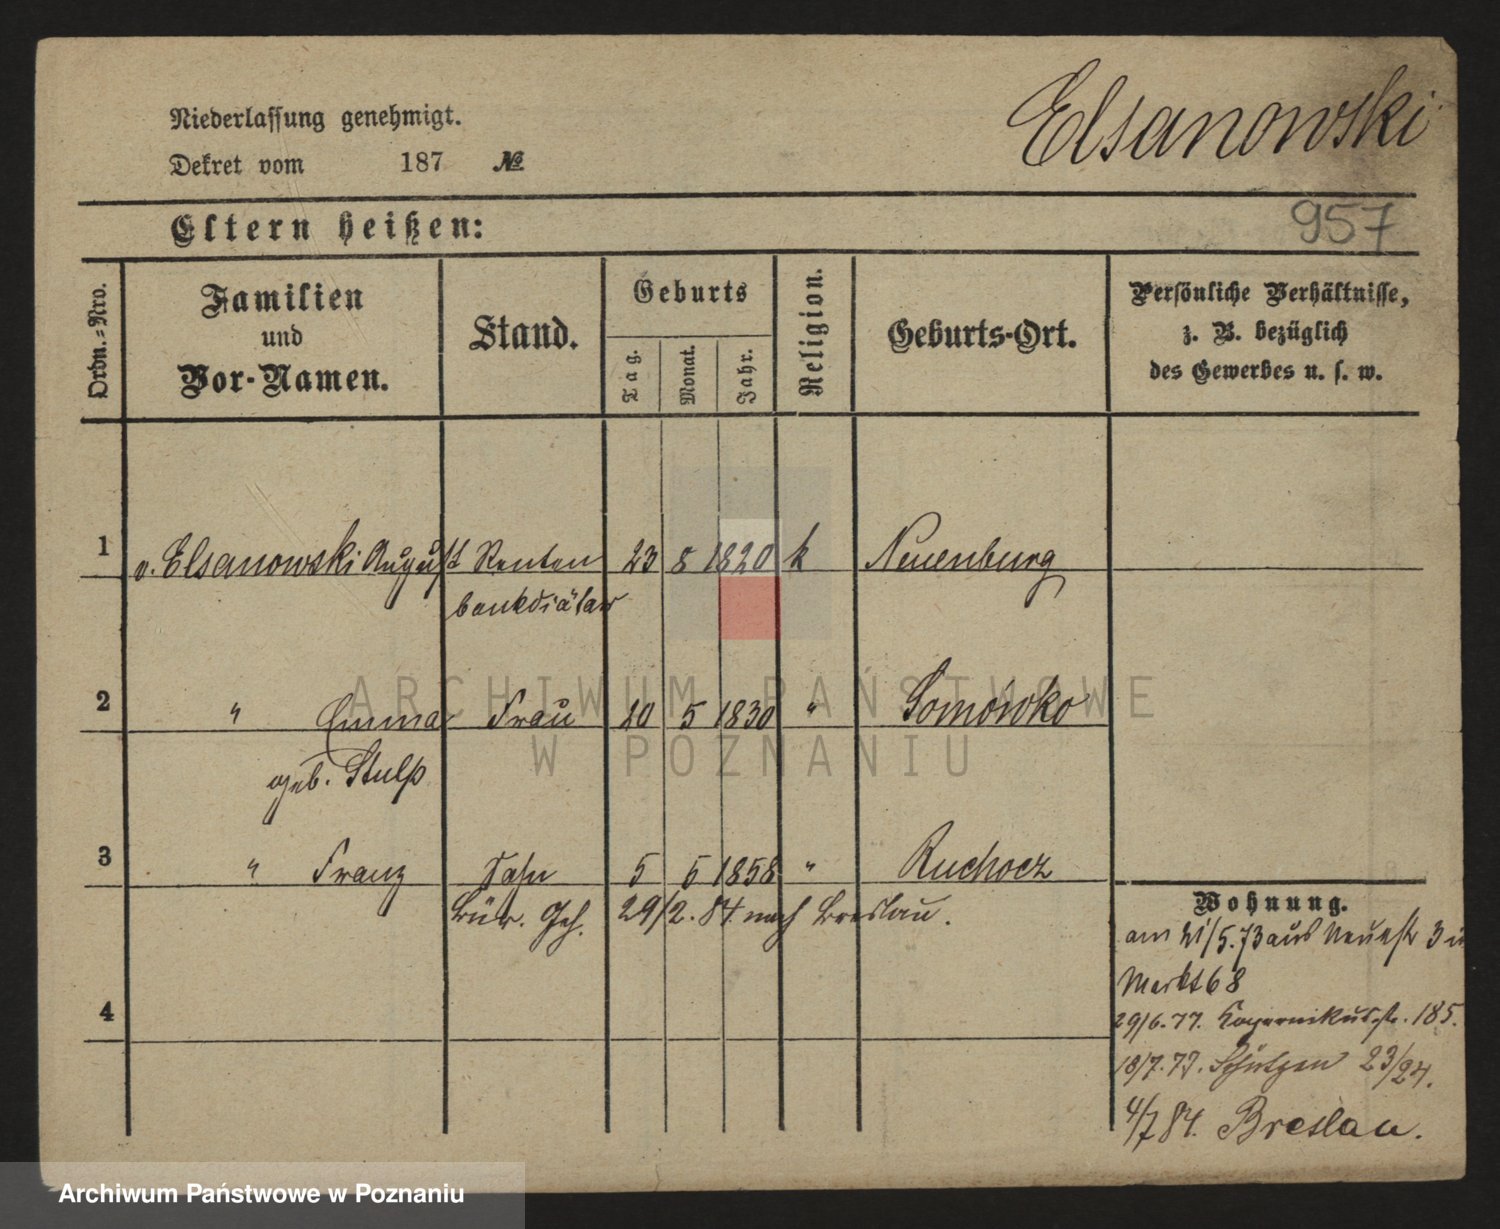 Niederlassung genehmigt.
Elsanowski
Dekret vom 187 №
Eltern heißen:
957
Ordn.-Nro.
Familien
und
Vor-Namen.
Stand.
Geburts
Tag.
Monat.
Jahr.
Religion.
Geburts-Ort.
Persönliche Verhältnisse,
z. B. bezüglich
des Gewerbes u. s. w.
1 v. Elsanowski August Renten 23 8 1820 k Neuenburg
bankdiätar
ARCHIWUM PAŃSTWOWE
W POZNANIU
2 " Emma Frau 20 5 1830 " Somówko
geb. Stulp
3 " Franz Sohn 5 5 1858 " Ruchocz
Bür. Geh. 29/2. 84. nach Breslau.
4
Wohnung.
am 21/5.73 aus Neuestr 3 in
Markt 68
29/6.77. Kopernikusstr. 185.
18/7.79. Schützen 23/24.
4/7 84. Breslau.
Archiwum Państwowe w Poznaniu